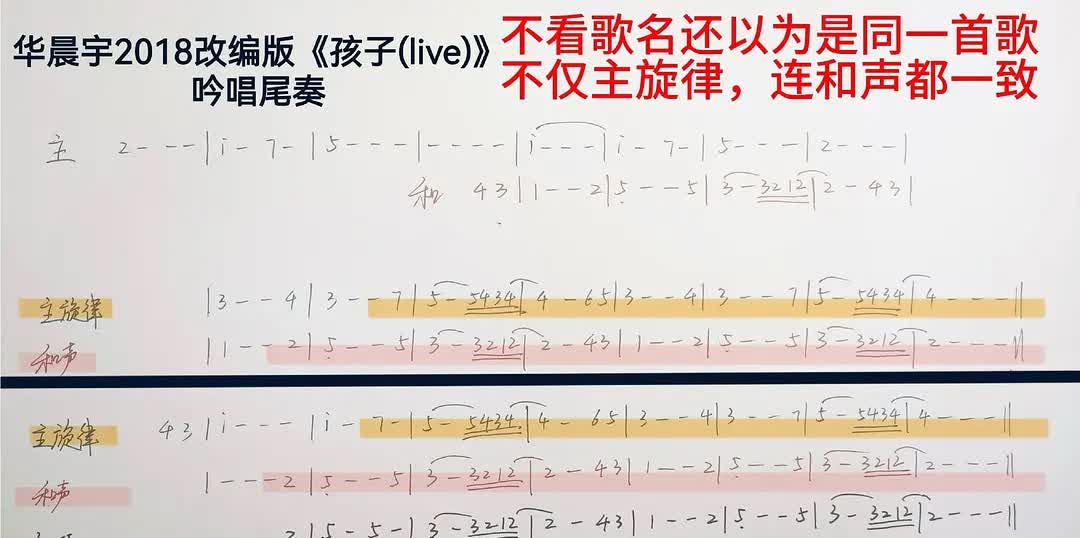 华晨宇2018改编版《孩子(live)》
吟唱尾奏
不看歌名还以为是同一首歌
不仅主旋律，连和声都一致
主 2 - - - | i - 7 - | 5 - - - | - - - - | i - - - | i - 7 - | 5 - - - | 2 - - - |
和 4 3 | 1 - - 2 | 5 - - 5 | 3 - 3212 | 2 - 4 3 |
主旋律 | 3 - - 4 | 3 - - 7 | 5 - 5434 | 4 - 6 5 | 3 - - 4 | 3 - - 7 | 5 - 5434 | 4 - - - ||
和声 | 1 - - 2 | 5 - - 5 | 3 - 3212 | 2 - 4 3 | 1 - - 2 | 5 - - 5 | 3 - 3212 | 2 - - - ||
主旋律 4 3 | i - - - | i - 7 - | 5 - 5434 | 4 - 6 5 | 3 - - 4 | 3 - - 7 | 5 - 5434 | 4 - - - ||
和声 | 1 - - - 2 | 5 - - 5 | 3 - 3212 | 2 - 4 3 | 1 - - 2 | 5 - - 5 | 3 - 3212 | 2 - - - ||
2 | 5 - 5 - | 3 - 3212 | 2 - 4 3 | 1 - - 2 | 5 - - 5 | 3 - 3212 | 2 - - - ||